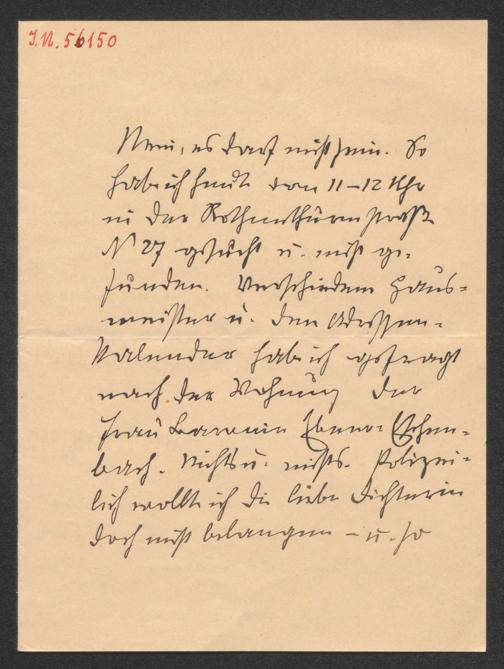 I.N. 56150
Nein, es darf nicht sein. So
hab ich heute von 11–12 Uhr
in der Rothenthürmstraße
N 27 gesucht u. nicht ge-
funden. Verschiedene Haus-
meister u. den Adressen-
Kalender hab ich gefragt
nach der Wohnung der
Frau Baronin Ebner-Eschen-
bach. Nichts u. nichts. Polizei-
lich wollte ich die liebe Dichterin
doch nicht belangen – u. so